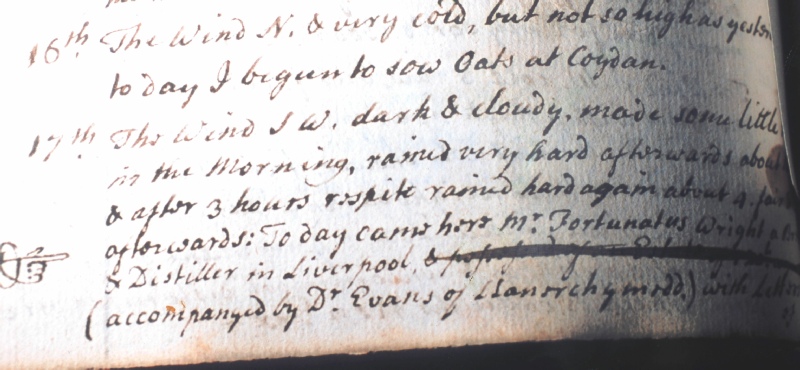 16th The Wind N. & very cold, but not so high as yester
to day I begun to sow Oats at Coydan.
17th The Wind S W. dark & cloudy, made some little
in the Morning, rained very hard afterwards about
& after 3 hours respite rained hard again about 4. fair
afterwards: To day came here Mr. Fortunatus Wright a
& Distiller in Liverpool, &
(accompanyed by Dr. Evans of Llanerchymedd,) with Letters